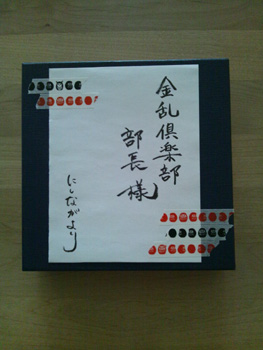 金乱倶楽部
部長様
にしながより